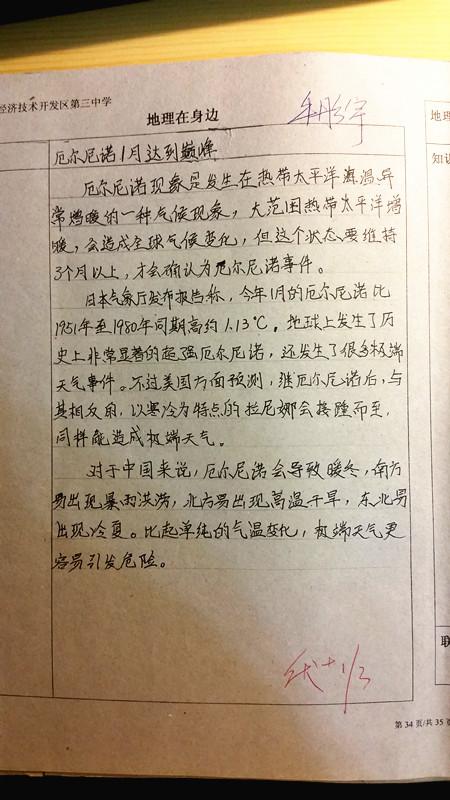 经济技术开发区第三中学
地理在身边
厄尔尼诺1月达到巅峰
厄尔尼诺现象是发生在热带太平洋海温异
常增暖的一种气候现象，大范围热带太平洋增
暖，会造成全球气候变化，但这个状态要维持
3个月以上，才会确认为厄尔尼诺事件。
日本气象厅发布报告称，今年1月的厄尔尼诺比
1951年至1980年同期高约1.13℃。地球上发生了历
史上非常显著的超强厄尔尼诺，还发生了很多极端
天气事件。不过美国方面预测，继厄尔尼诺后，与
其相反的，以寒冷为特点的拉尼娜会接踵而至，
同样能造成极端天气。
对于中国来说，厄尔尼诺会导致暖冬，南方
易出现暴雨洪涝，北方易出现高温干旱，东北易
出现冷夏。比起单纯的气温变化，极端天气更
容易引发危险。
第 34 页/共 35 页
地理
知识
联